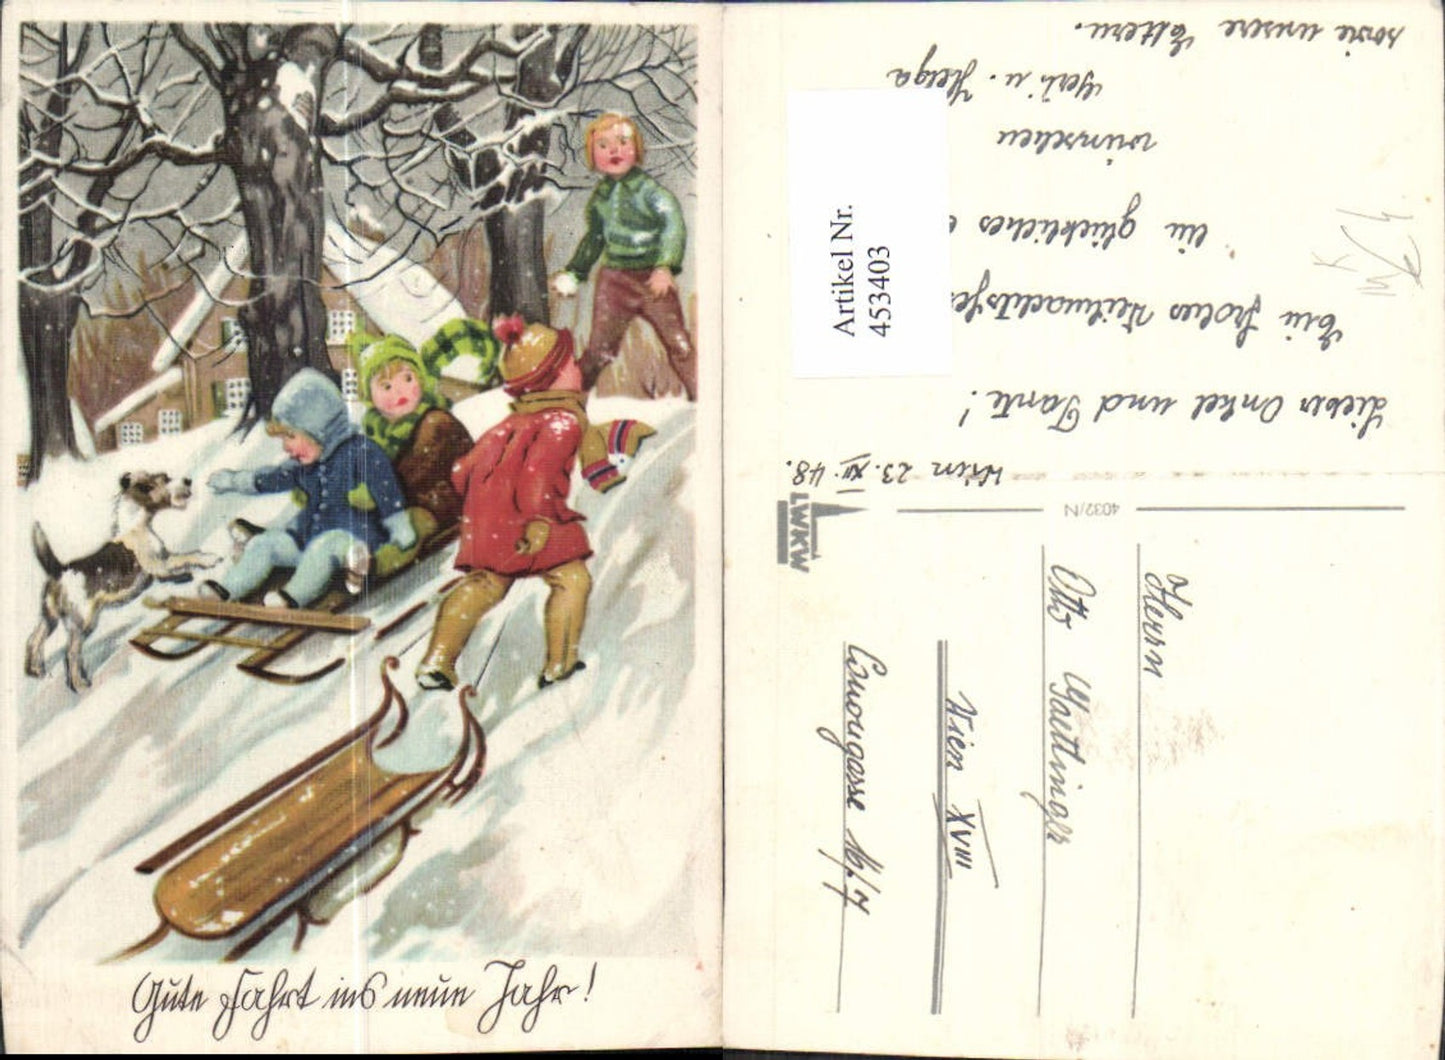 Gute Fahrt ins neue Jahr!
Wien 23. XII. 48.
Lieber Onkel und Tante!
Ein frohes Weihnachtsfe
Ein glückliches
wünschen
Gerti u. Helga
sowie unsere Eltern.
Artikel Nr.
453403
LWKW
4032/N
Herrn
Otto
Wien XVIII
16/7